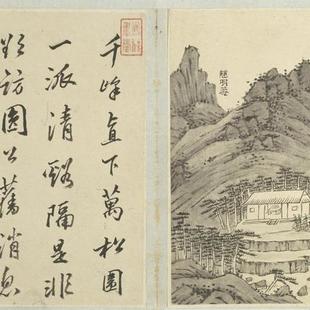 千峰直下萬松圍
一派清谿隔是非
欲訪園公舊消息
明菴